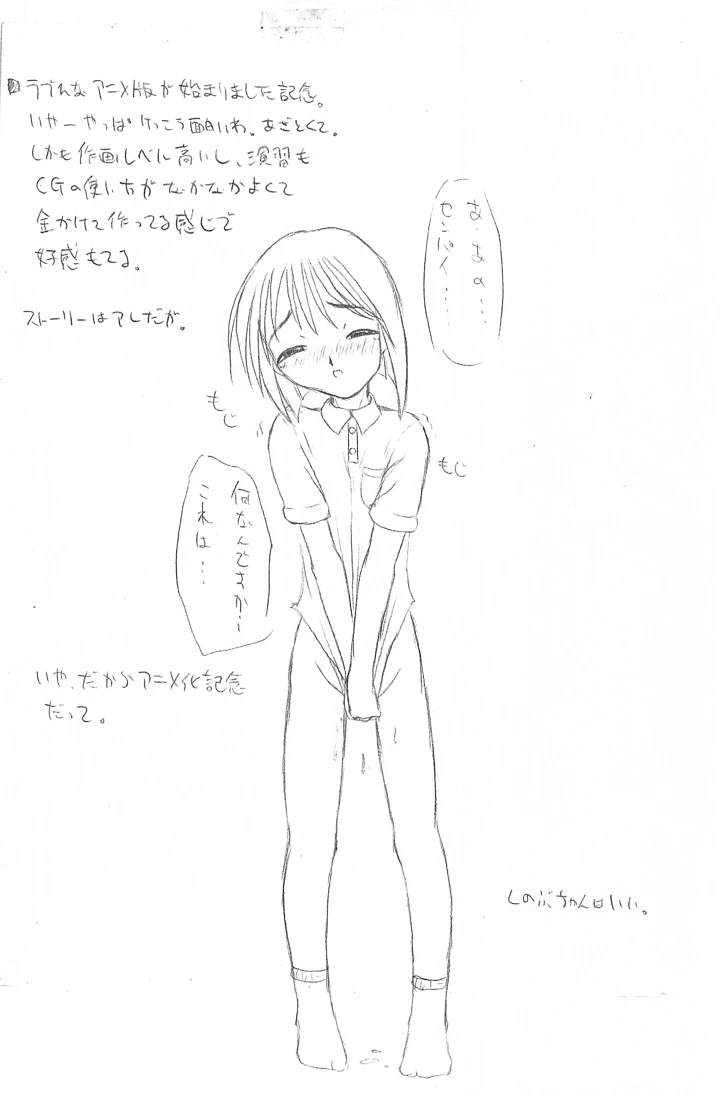 ラブひなアニメ版が始まりました記念。
いやーやっぱけっこう面白いわ。あざとくて。
しかも作画レベル高いし、演習も
CGの使い方がなかなかよくて
金かけて作ってる感じで
好感もてる。
ストーリーはアレだが。
あ・あの…
センパイ……
もじ
もじ
何なんですかー
これは…
いや、だからアニメ化記念
だって。
しのぶちゃんはいい。